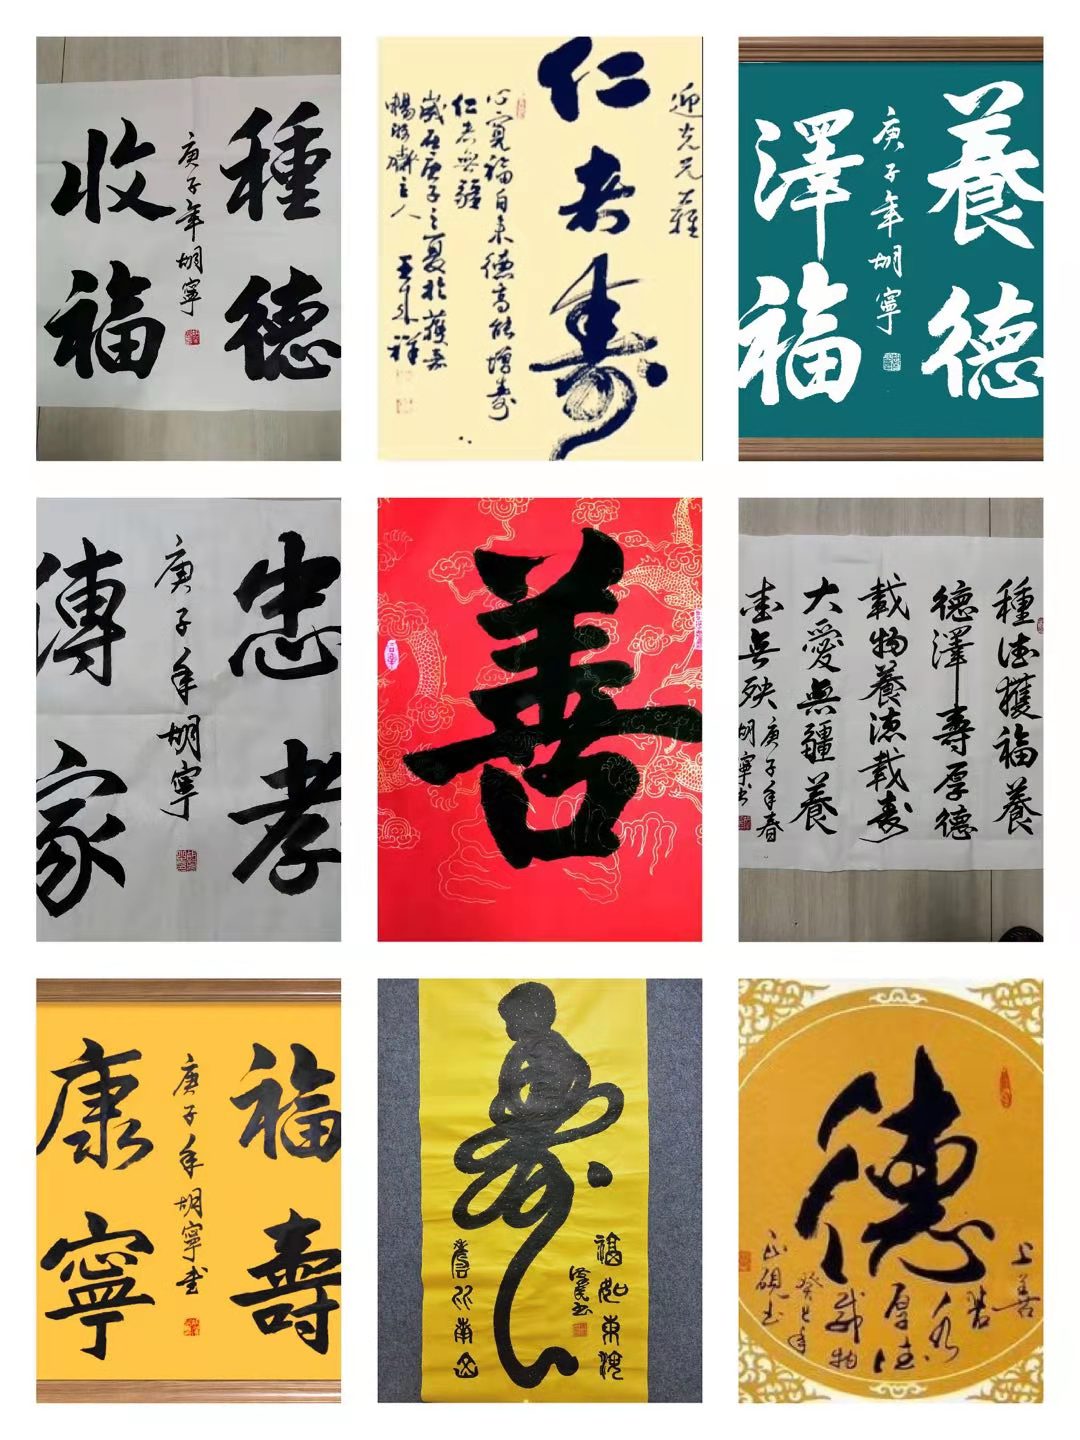 種德
收福
庚子年胡寧
迎光兄雅
仁者壽
心寬福自來德高能增壽
仁者無疆
歲在庚子之夏於
主人
養德
澤福
庚子年胡寧
忠孝
傳家
庚子年胡寧
善
種德獲福養
德澤壽厚德
載物養德載壽
大愛無疆養
壽無殃
庚子年春
胡寧書
福壽
康寧
庚子年胡寧書
壽
福如東海
壽比南山
德
上善
若水
厚德
載物
癸巳年